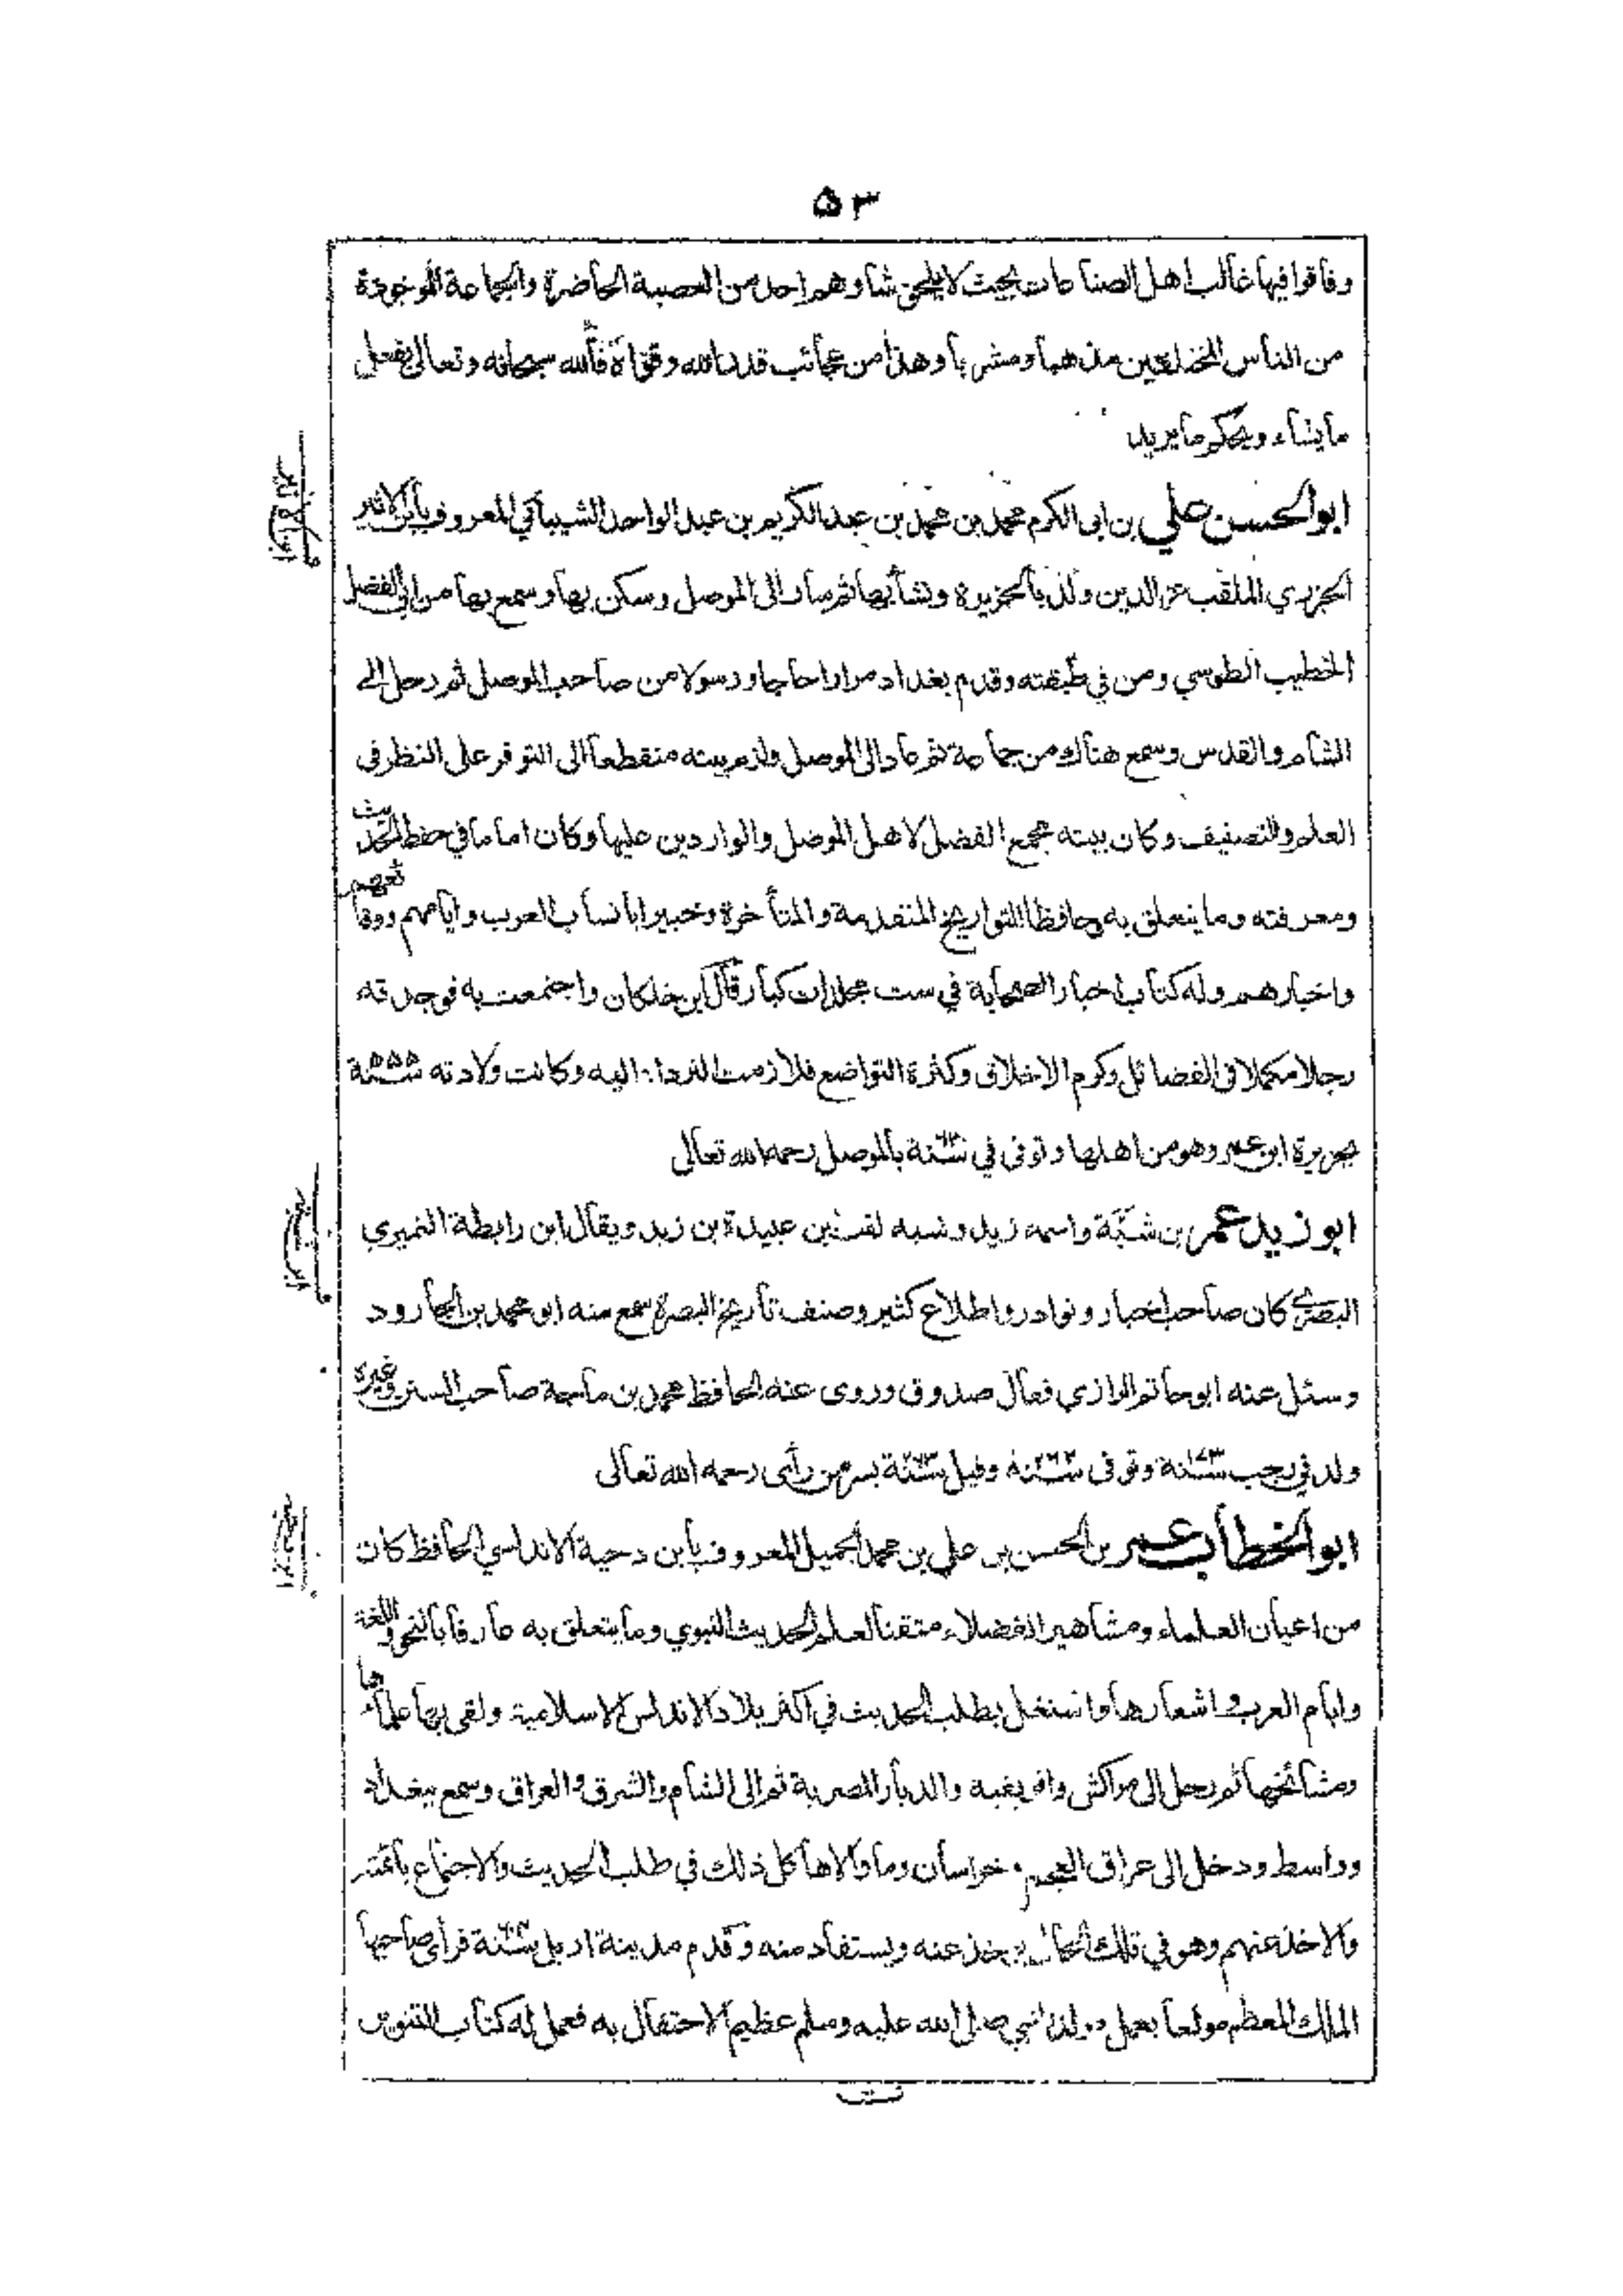 ٥٣
وفاقوا فيها غالب اهل الصناعات بحيث لا يلحق شأوهم احد من العصبة الحاضرة والجماعة الموجودة
من الناس المختلفين مذهبا ومشربا وهذا من عجائب قدرة الله وقوته فالله سبحانه وتعالى يفعل
ما يشاء ويحكم ما يريد
ابو الحسن علي بن ابى الكرم محمد بن محمد بن عبد الكريم بن عبد الواحد الشيباني المعروف بابن الاثير
الجزري الملقب عز الدين ولد بالجزيرة ونشأ بها ثم سار الى الموصل وسكن بها وسمع بها من ابي الفضل
الخطيب الطوسي ومن في طبقته وقدم بغداد مرارا حاجا ورسولا من صاحب الموصل ثم رحل الى
الشام والقدس وسمع هناك من جماعة ثم عاد الى الموصل ولزم بيته منقطعا الى التوفر على النظر فى
العلم والتصنيف وكان بيته مجمع الفضل لاهل الموصل والواردين عليها وكان اماما في حفظ الحديث
ومعرفته وما يتعلق به وحافظا للتواريخ المتقدمة والمتأخرة وخبيرا بانساب العرب وايامهم ووقائعهم
واخبارهم وله كتاب اخبار الصحابة في ست مجلدات كبار قال ابن خلكان واجتمعت به فوجدته
رجلا مكملا فى الفضائل وكرم الاخلاق وكثرة التواضع فلازمت الترداد اليه وكانت ولادته ٥٥٥ سنة
بجزيرة ابن عمر وهو من اهلها وتوفى في سنة بالموصل رحمه الله تعالى
ابو زيد عمر بن شبة واسمه زيد ونسبه بن عبيدة بن زيد ويقال ابن رابطة النميري
البصري كان صاحب اخبار ونوادر واطلاع كثير وصنف تاريخ البصرة سمع منه ابو محمد بن الجارود
وسئل عنه ابو حاتم الرازي فقال صدوق وروى عنه الحافظ محمد بن ماجة صاحب السنن وغيره
ولد في رجب سنة ١٧٣ وتوفى سنة ٢٦٢ وقيل سنة ٢٦٣ بسر من رأى رحمه الله تعالى
ابو الخطاب عمر بن الحسن بن علي بن محمد الجميل المعروف بابن دحية الاندلسي الحافظ كان
من اعيان العلماء ومشاهير الفضلاء متقنا لعلم الحديث النبوي وما يتعلق به عارفا بالنحو واللغة
وايام العرب واشعارها واشتغل بطلب الحديث في اكثر بلاد الاندلس الاسلامية ولقى بها علماءها
ومشائخها ثم رحل الى مراكش وافريقية والديار المصرية ثم الى الشام والشرق والعراق وسمع ببغداد
وواسط ودخل الى عراق العجم وخراسان وما والاها كل ذلك في طلب الحديث والاجتماع بائمته
والاخذ عنهم وهو في تلك الحال يوخذ عنه ويستفاد منه وقدم مدينة اربل سنة فرأى صاحبها
الملك المعظم مولعا بعمل مولد النبي صلى الله عليه وسلم عظيم الاحتفال به فعمل له كتاب التنوير
ابن الاثير
ابن شبة
ابن دحية